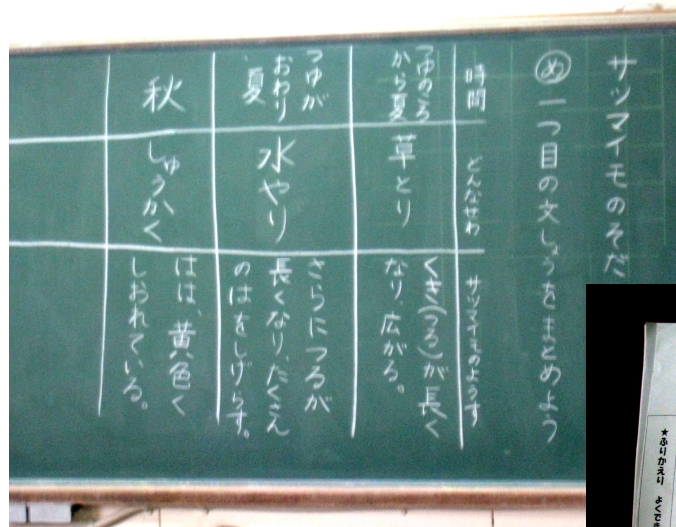 サツマイモのそだ
め 一つ目の文しょうをまとめよう
時間
どんなせわ
サツマイモのようす
つゆのころ
から夏
草とり
くき(つる)が長く
なり、広がる。
つゆが
おわり
、夏
水やり
さらにつるが
長くなり、たくさん
のはをしげらす。
秋
しゅうかく
はは、黄色く
しおれている。
★ふりかえり よくで